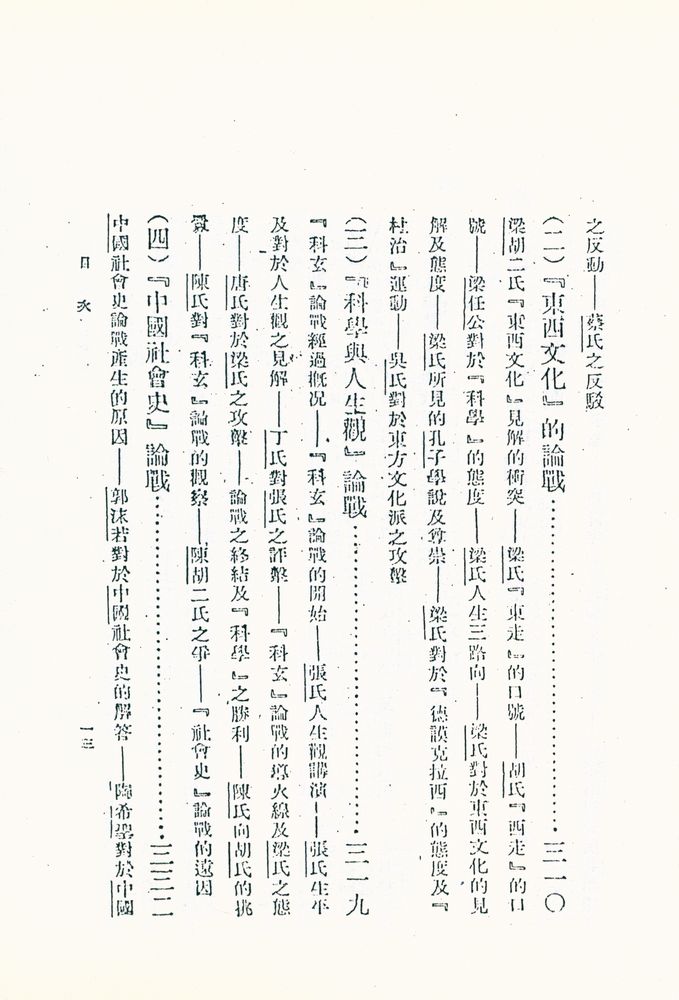 之反動——蔡氏之反駁
(二)『東西文化』的論戰……………………三一〇
梁胡二氏『東西文化』見解的衝突——梁氏『東走』的口號——胡氏『西走』的口
號——梁任公對於『科學』的態度——梁氏人生三路向——梁氏對於東西文化的見
解及態度——梁氏所見的孔子學說及尊崇——梁氏對於『德謨克拉西』的態度及『
村治』運動——吳氏對於東方文化派之攻擊
(三)『科學與人生觀』論戰……………………三一九
『科玄』論戰經過概况——『科玄』論戰的開始——張氏人生觀講演——張氏生平
及對於人生觀之見解——丁氏對張氏之評擊——『科玄』論戰的導火線及梁氏之態
度——唐氏對於梁氏之攻擊——論戰之終結及『科學』之勝利——陳氏向胡氏的挑
釁——陳氏對『科玄』論戰的觀察——陳胡二氏之爭——『社會史』論戰的遠因
(四)『中國社會史』論戰……………………三三二
中國社會史論戰產生的原因——郭沫若對於中國社會史的解答——陶希聖對於中國
目次
一三